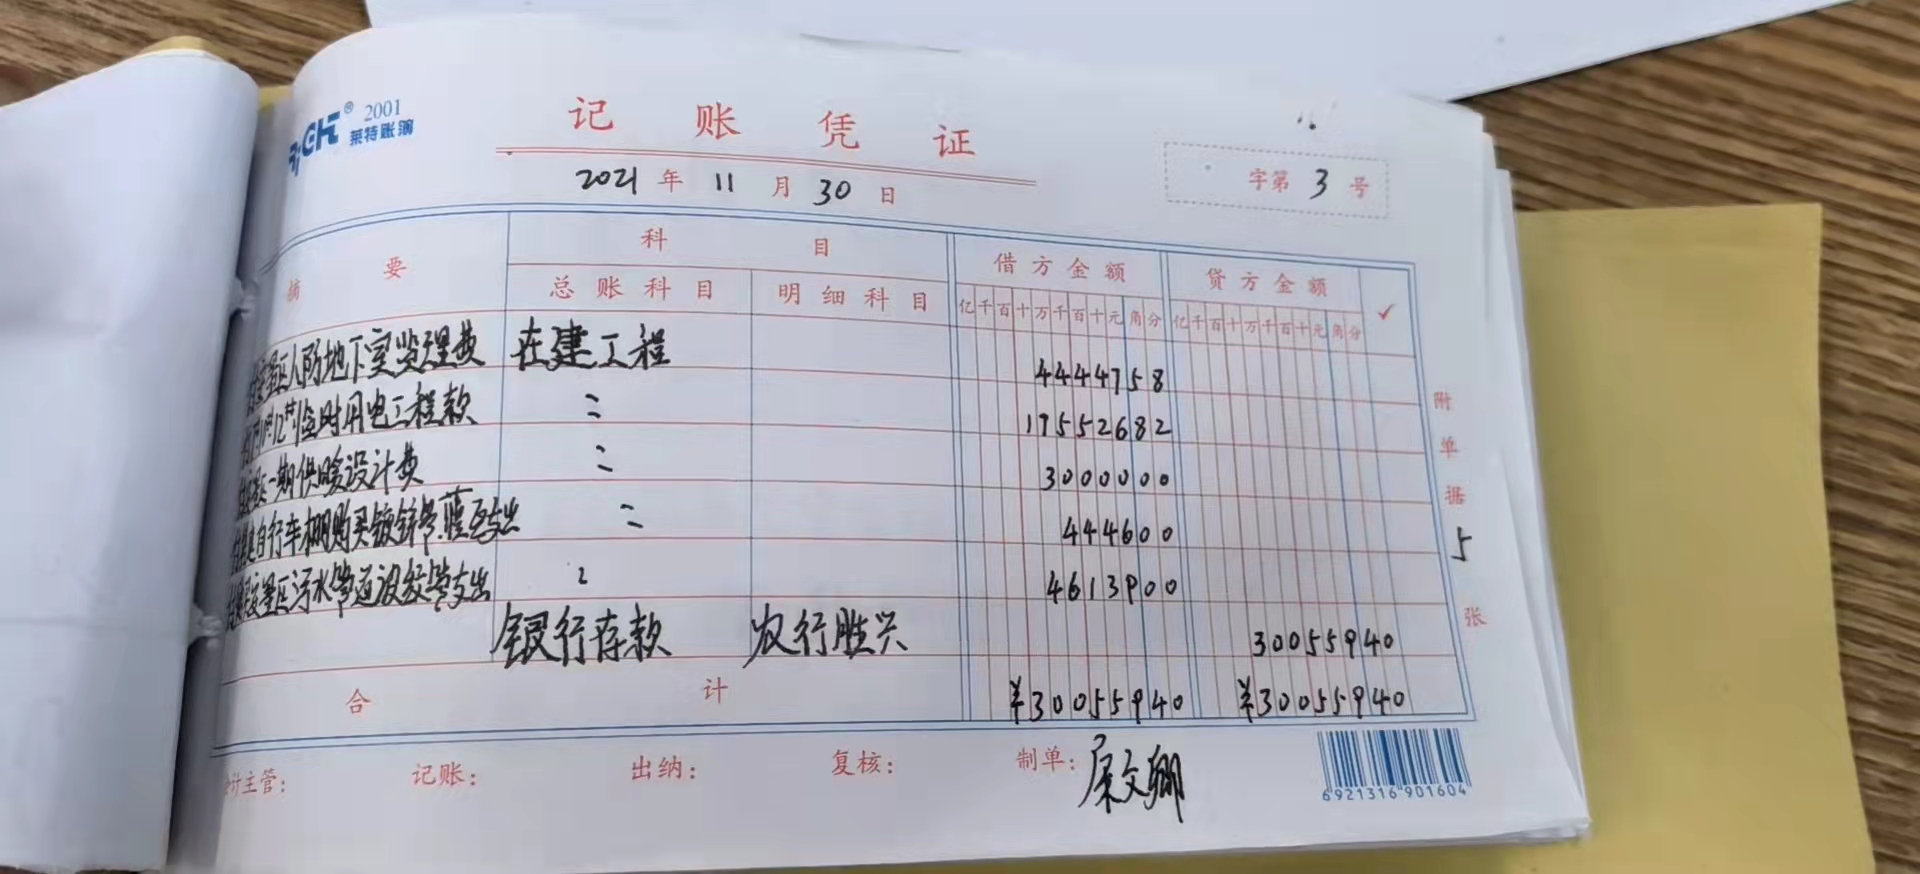 RIGHT® 2001
莱特账簿
记账凭证
2021年11月30日
字第3号
摘要 科目 借方金额 贷方金额 ✓
总账科目 明细科目 亿千百十万千百十元角分 亿千百十万千百十元角分
景区人防地下室监理费 在建工程 4444758
临时用电工程款 〃 17552682
一期供暖设计费 〃 3000000
自行车棚购买镀锌管 支出 〃 444600
景区污水管道波纹管支出 〃 4613900
银行存款 农行胜兴 30055940
合计 ¥30055940 ¥30055940
附单据5张
会计主管: 记账: 出纳: 复核: 制单: 屎文卿
6921316901604